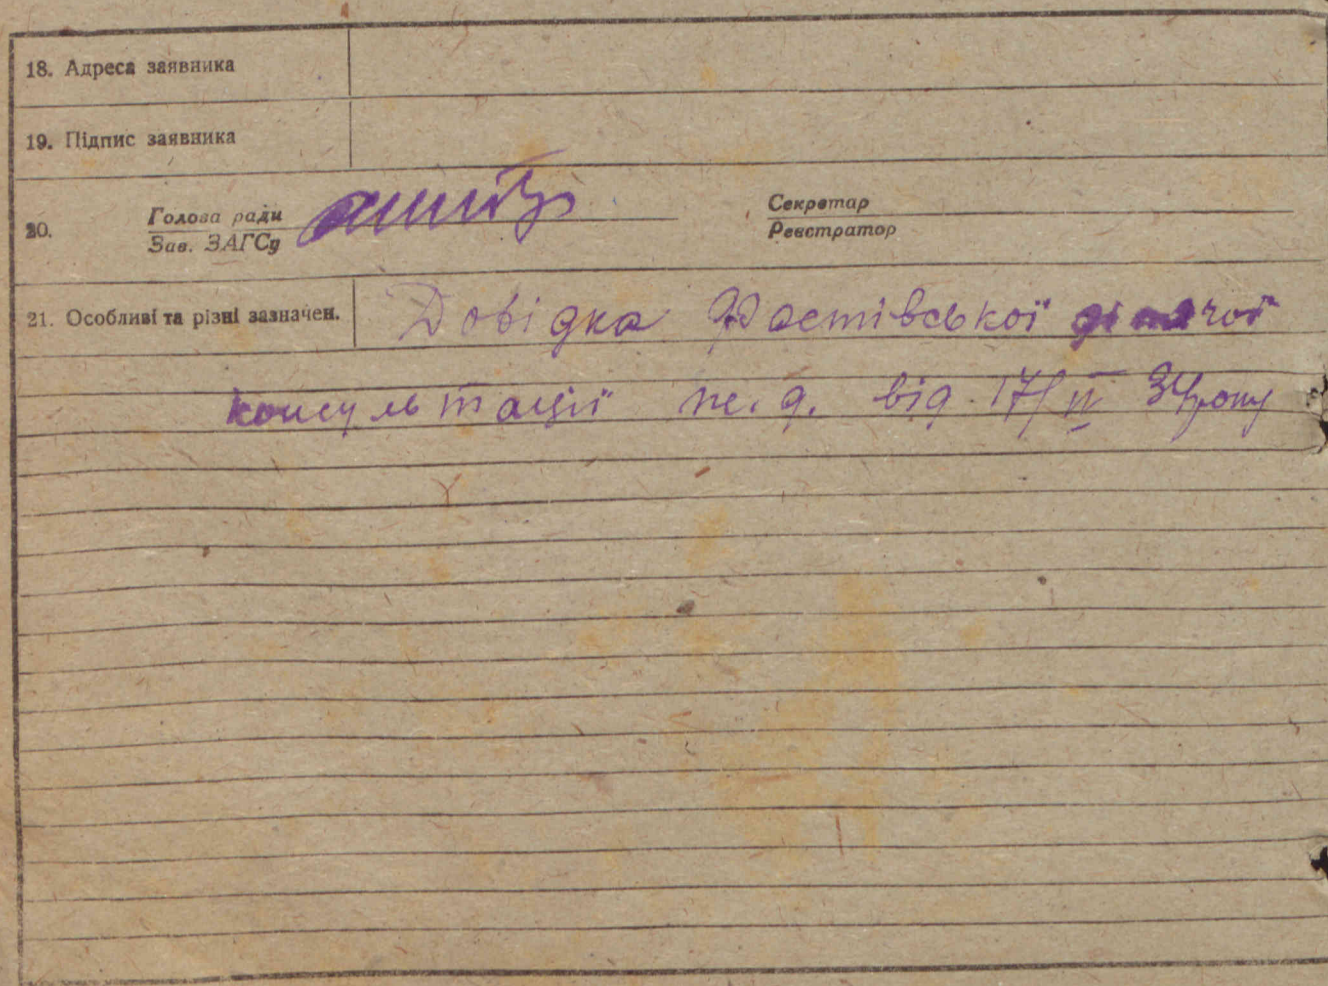 18. Адреса заявника
19. Підпис заявника
20. Голова ради
Зав. ЗАГСу
Секретар
Реєстратор
21. Особливі та різні зазначен. Довідка Фастівської дитячої
консультації від 17/IV 34 року